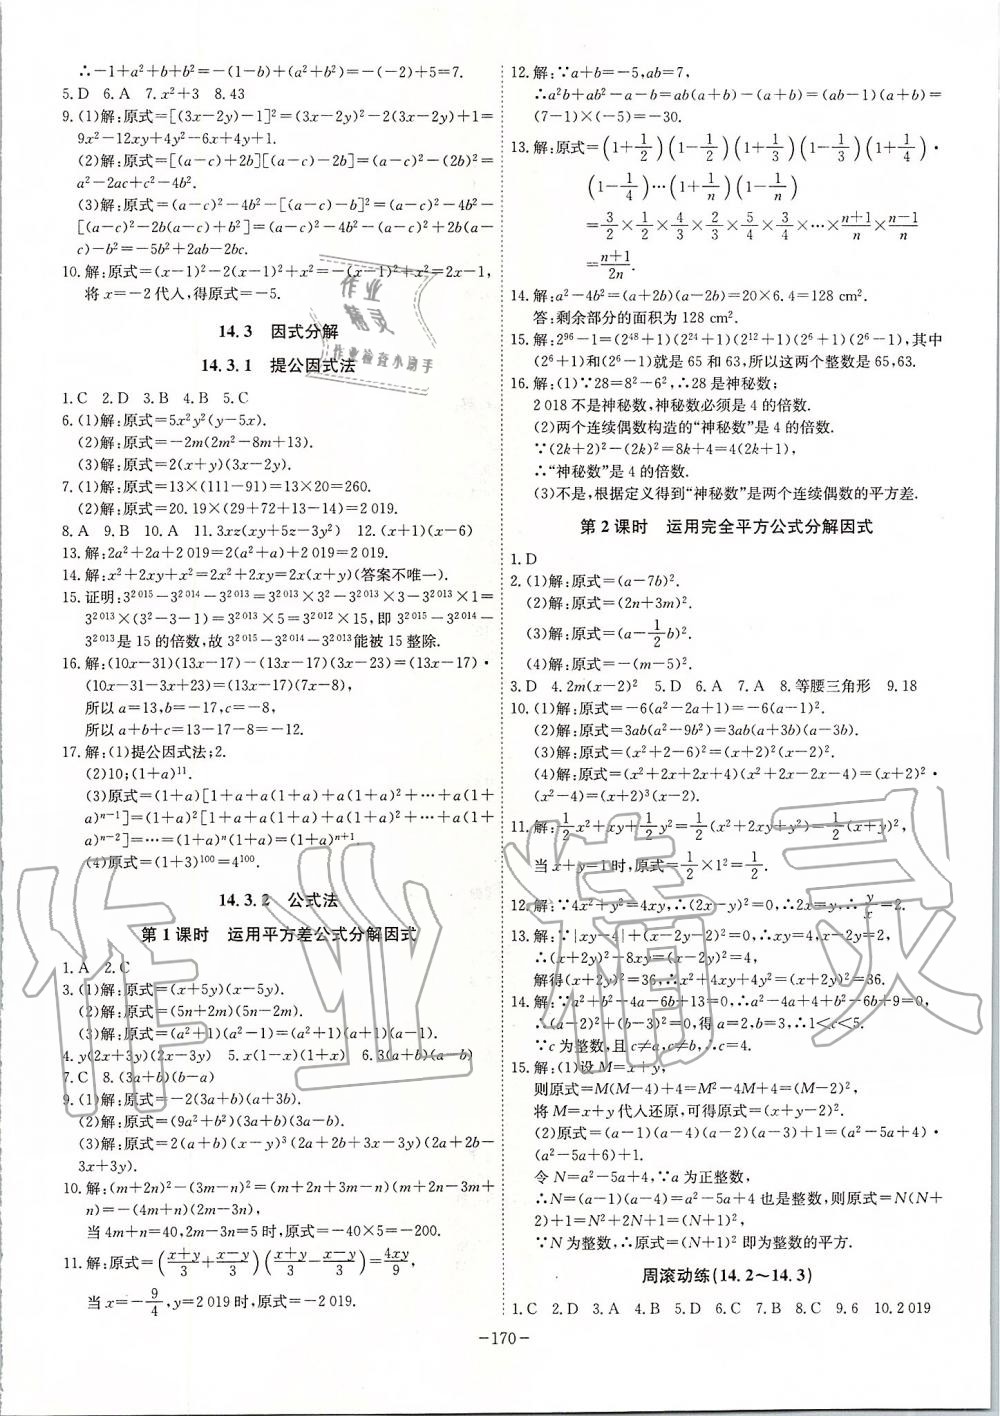 ∴-1+a²+b+b²=-(1-b)+(a²+b²)=-(-2)+5=7.
5.D 6.A 7.x²+3 8.43
9.(1)解:原式=[(3x-2y)-1]²=(3x-2y)²-2(3x-2y)+1=
9x²-12xy+4y²-6x+4y+1.
(2)解:原式=[(a-c)+2b][(a-c)-2b]=(a-c)²-(2b)²=
a²-2ac+c²-4b².
(3)解:原式=(a-c)²-4b²-[(a-c)-b]²=(a-c)²-4b²-
[(a-c)²-2b(a-c)+b²]=(a-c)²-4b²-(a-c)²+2b(a-
c)-b²=-5b²+2ab-2bc.
10.解:原式=(x-1)²-2(x-1)²+x²=-(x-1)²+x²=2x-1,
将x=-2代入,得原式=-5.
14.3 因式分解
14.3.1 提公因式法
1.C 2.D 3.B 4.B 5.C
6.(1)解:原式=5x²y²(y-5x).
(2)解:原式=-2m(2m²-8m+13).
(3)解:原式=2(x+y)(3x-2y).
7.(1)解:原式=13×(111-91)=13×20=260.
(2)解:原式=20.19×(29+72+13-14)=2 019.
8.A 9.B 10.A 11.3xz(xy+5z-3y²) 12.(x+1)(x-6)
13.解:2a²+2a+2 019=2(a²+a)+2 019=2 019.
14.解:x²+2xy+x²=2x²+2xy=2x(x+y)(答案不唯一).
15.证明:3²⁰¹⁵-3²⁰¹⁴-3²⁰¹³=3²⁰¹³×3²-3²⁰¹³×3-3²⁰¹³×1=
3²⁰¹³×(3²-3-1)=3²⁰¹³×5=3²⁰¹²×15,即3²⁰¹⁵-3²⁰¹⁴-
3²⁰¹³是15的倍数,故3²⁰¹⁵-3²⁰¹⁴-3²⁰¹³能被15整除.
16.解:(10x-31)(13x-17)-(13x-17)(3x-23)=(13x-17)·
(10x-31-3x+23)=(13x-17)(7x-8),
所以a=13,b=-17,c=-8,
所以a+b+c=13-17-8=-12.
17.解:(1)提公因式法;2.
(2)10;(1+a)¹¹.
(3)原式=(1+a)[1+a+a(1+a)+a(1+a)²+…+a(1+
a)ⁿ⁻¹]=(1+a)²[1+a+a(1+a)+a(1+a)²+…+a(1+
a)ⁿ⁻²]=…=(1+a)ⁿ(1+a)=(1+a)ⁿ⁺¹.
(4)原式=(1+3)¹⁰⁰=4¹⁰⁰.
14.3.2 公式法
第1课时 运用平方差公式分解因式
1.A 2.C
3.(1)解:原式=(x+5y)(x-5y).
(2)解:原式=(5n+2m)(5n-2m).
(3)解:原式=(a²+1)(a²-1)=(a²+1)(a+1)(a-1).
4.y(2x+3y)(2x-3y) 5.x(1-x)(1+x) 6.3(a+b)(a-b)
7.C 8.(3a+b)(b-a)
9.(1)解:原式=-2(3a+b)(a+3b).
(2)解:原式=(9a²+b²)(3a+b)(3a-b).
(3)解:原式=2(a+b)(x-y)³(2a+2b+3x-3y)(2a+2b-
3x+3y).
10.解:(m+2n)²-(3m-n)²=(m+2n+3m-n)(m+2n-3m+n)
=-(4m+n)(2m-3n),
当4m+n=40,2m-3n=5时,原式=-40×5=-200.
11.解:原式=((x+y)/3+(x-y)/3)((x+y)/3-(x-y)/3)=4xy/9,
当x=-9/4,y=2 019时,原式=-2 019.
12.解:∵a+b=-5,ab=7,
∴a²b+ab²-a-b=ab(a+b)-(a+b)=(ab-1)(a+b)=
(7-1)×(-5)=-30.
13.解:原式=(1+1/2)(1-1/2)(1+1/3)(1-1/3)(1+1/4)·
(1-1/4)…(1+1/n)(1-1/n)
=3/2×1/2×4/3×2/3×5/4×3/4×…×(n+1)/n×(n-1)/n
=(n+1)/2n.
14.解:a²-4b²=(a+2b)(a-2b)=20×6.4=128 cm².
答:剩余部分的面积为128 cm².
15.解:2⁹⁶-1=(2⁴⁸+1)(2²⁴+1)(2¹²+1)(2⁶+1)(2⁶-1),其中
(2⁶+1)和(2⁶-1)就是65和63,所以这两个整数是65,63.
16.解:(1)∵28=8²-6²,∴28是神秘数;
2 018不是神秘数,神秘数必须是4的倍数.
(2)两个连续偶数构造的“神秘数”是4的倍数.
∵(2k+2)²-(2k)²=8k+4=4(2k+1),
∴“神秘数”是4的倍数.
(3)不是,根据定义得到“神秘数”是两个连续偶数的平方差.
第2课时 运用完全平方公式分解因式
1.D
2.(1)解:原式=(a-7b)².
(2)解:原式=(2n+3m)².
(3)解:原式=(a-1/2b)².
(4)解:原式=-(m-5)².
3.D 4.2m(x-2)² 5.D 6.A 7.A 8.等腰三角形 9.18
10.(1)解:原式=-6(a²-2a+1)=-6(a-1)².
(2)解:原式=3ab(a²-9b²)=3ab(a+3b)(a-3b).
(3)解:原式=(x²+2-6)²=(x+2)²(x-2)².
(4)解:原式=(x²+2x+2x+4)(x²-4)=(x+2)²·
(x²-4)=(x+2)³(x-2).
11.解:1/2x²+xy+1/2y²=1/2(x²+2xy+y²)=1/2(x+y)²,
当x+y=1时,原式=1/2×1²=1/2.
12.解:∵4x²+y²=4xy,∴(2x-y)²=0,∴2x=y,∴y/x=2.
13.解:∵|xy-4|+(x-2y-2)²=0,∴xy=4,x-2y=2,
∴(x+2y)²-8xy=(x-2y)²=4,
解得(x+2y)²=36,∴x²+4xy+4y²=(x+2y)²=36.
14.解:∵a²+b²-4a-6b+13=0,∴a²-4a+4+b²-6b+9=0,
∴(a-2)²+(b-3)²=0,得a=2,b=3,∴1<c<5.
∵c为整数,且c≠a,c≠b,∴c=4.
15.解:(1)设M=x+y,
则原式=M(M-4)+4=M²-4M+4=(M-2)².
将M=x+y代入还原,可得原式=(x+y-2)².
(2)原式=(a-1)(a-4)(a-2)(a-3)+1=(a²-5a+4)·
(a²-5a+6)+1.
令N=a²-5a+4,∵a为正整数,
∴N=(a-1)(a-4)=a²-5a+4也是整数,则原式=N(N+
2)+1=N²+2N+1=(N+1)².
∵N为整数,∴原式=(N+1)²即为整数的平方.
周滚动练(14.2~14.3)
1.C 2.D 3.A 4.D 5.A 6.B 7.C 8.C 9.6 10.2 019
-170-
作业
精灵
作业检查小助手
作业精灵